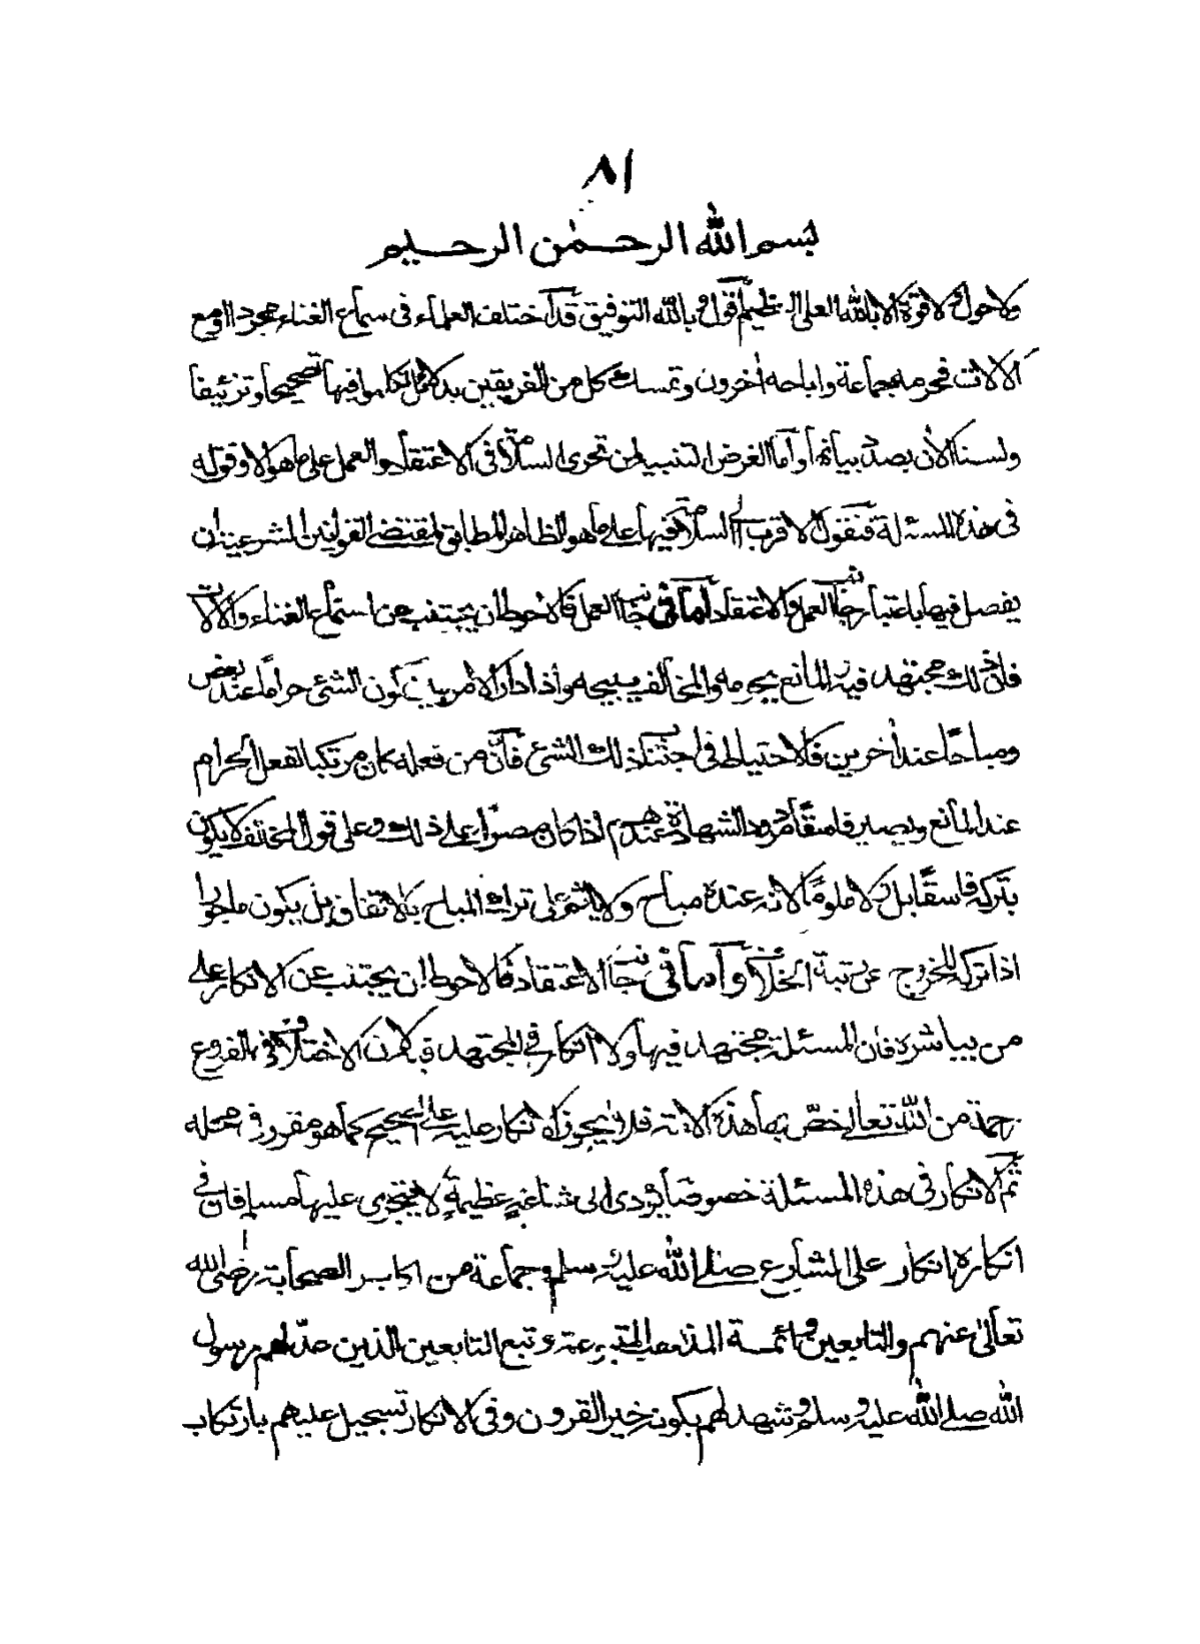 ٨١
بسم الله الرحمن الرحيم
ولا حول ولا قوة الا بالله العلى العظيم اقول وبالله التوفيق قد اختلف العلماء فى سماع الغناء مجردا او مع
الالات فحرمه جماعة واباحه اخرون وتمسك كل من الفريقين بدلائل تكلموا فيها تصحيحا وتزئيفا
ولسنا الان بصدد بيانها وانما الغرض التنبيه لمن تحرى السلامة فى الاعتقاد والعمل على ما هو الاوقوله
فى هذه المسئلة فنقول الاقرب الى السلامة فيها على ما هو الظاهر المطابق لمقتضى القوانين الشرعية ان
يفصل فيها باعتبار جانب العمل والاعتقاد اما فى جانب العمل فالاحوط ان يجتنب عن استماع الغناء والالات
فان ذلك مجتهد فيه المانع يحرمه والمخالف يبيحه واذا دار الامر بين كون الشئ حراما عند بعض
ومباحًا عند اخرين فالاحتياط فى اجتناب ذلك الشئ فان من فعله كان مرتكبا لفعل الحرام
عند المانع ويصير فاسقًا مردود الشهادة عندهم اذا كان مصرًا على ذلك وعلى قول المخالف لا يكون
بتركه فاسقًا بل لا ملومًا لانه عنده مباح ولا ياثم على ترك المباح بالاتفاق بل يكون ماجورا
اذا تركه للخروج عن تبة الخلاف واما فى جانب الاعتقاد فالاحوط ان يجتنب عن الانكار على
من يباشره فان المسئلة مجتهد فيها ولا انكار فى المجتهد فيه لان الاختلاف فى الفروع
رحمة من الله تعالى خصّ بها هذه الامة فلا يجوز الانكار عليه على الصحيح كما هو مقرر فى محله
ثم الانكار فى هذه المسئلة خصوصا يؤدى الى شناعةٍ عظيمةٍ لا يجترى عليها مسلم فان فى
انكاره انكار على الشارع صلى الله عليه وسلم وجماعة من اكابر الصحابة رضى الله
تعالىٰ عنهم والتابعين وائمة المذاهب المتبوعة وتبع التابعين الذين عدّلهم رسول
الله صلى الله عليه وسلم وشهد لهم بكونه خير القرون وفى الانكار تسجيل عليهم بارتكاب